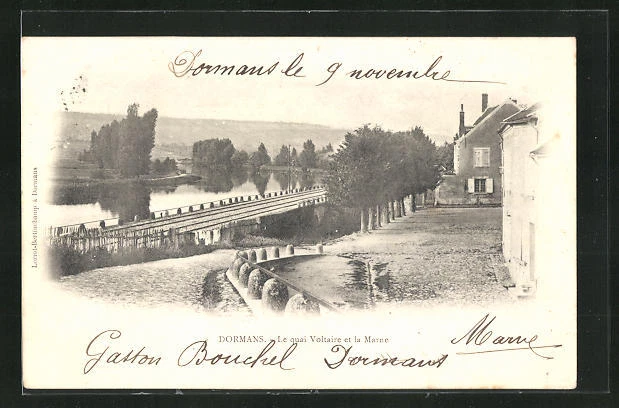 Dormans le 9 novembre
Lorrot-Berthuchamp à Dormans
DORMANS. - Le quai Voltaire et la Marne
Gaston Bouchel Dormans
Marne